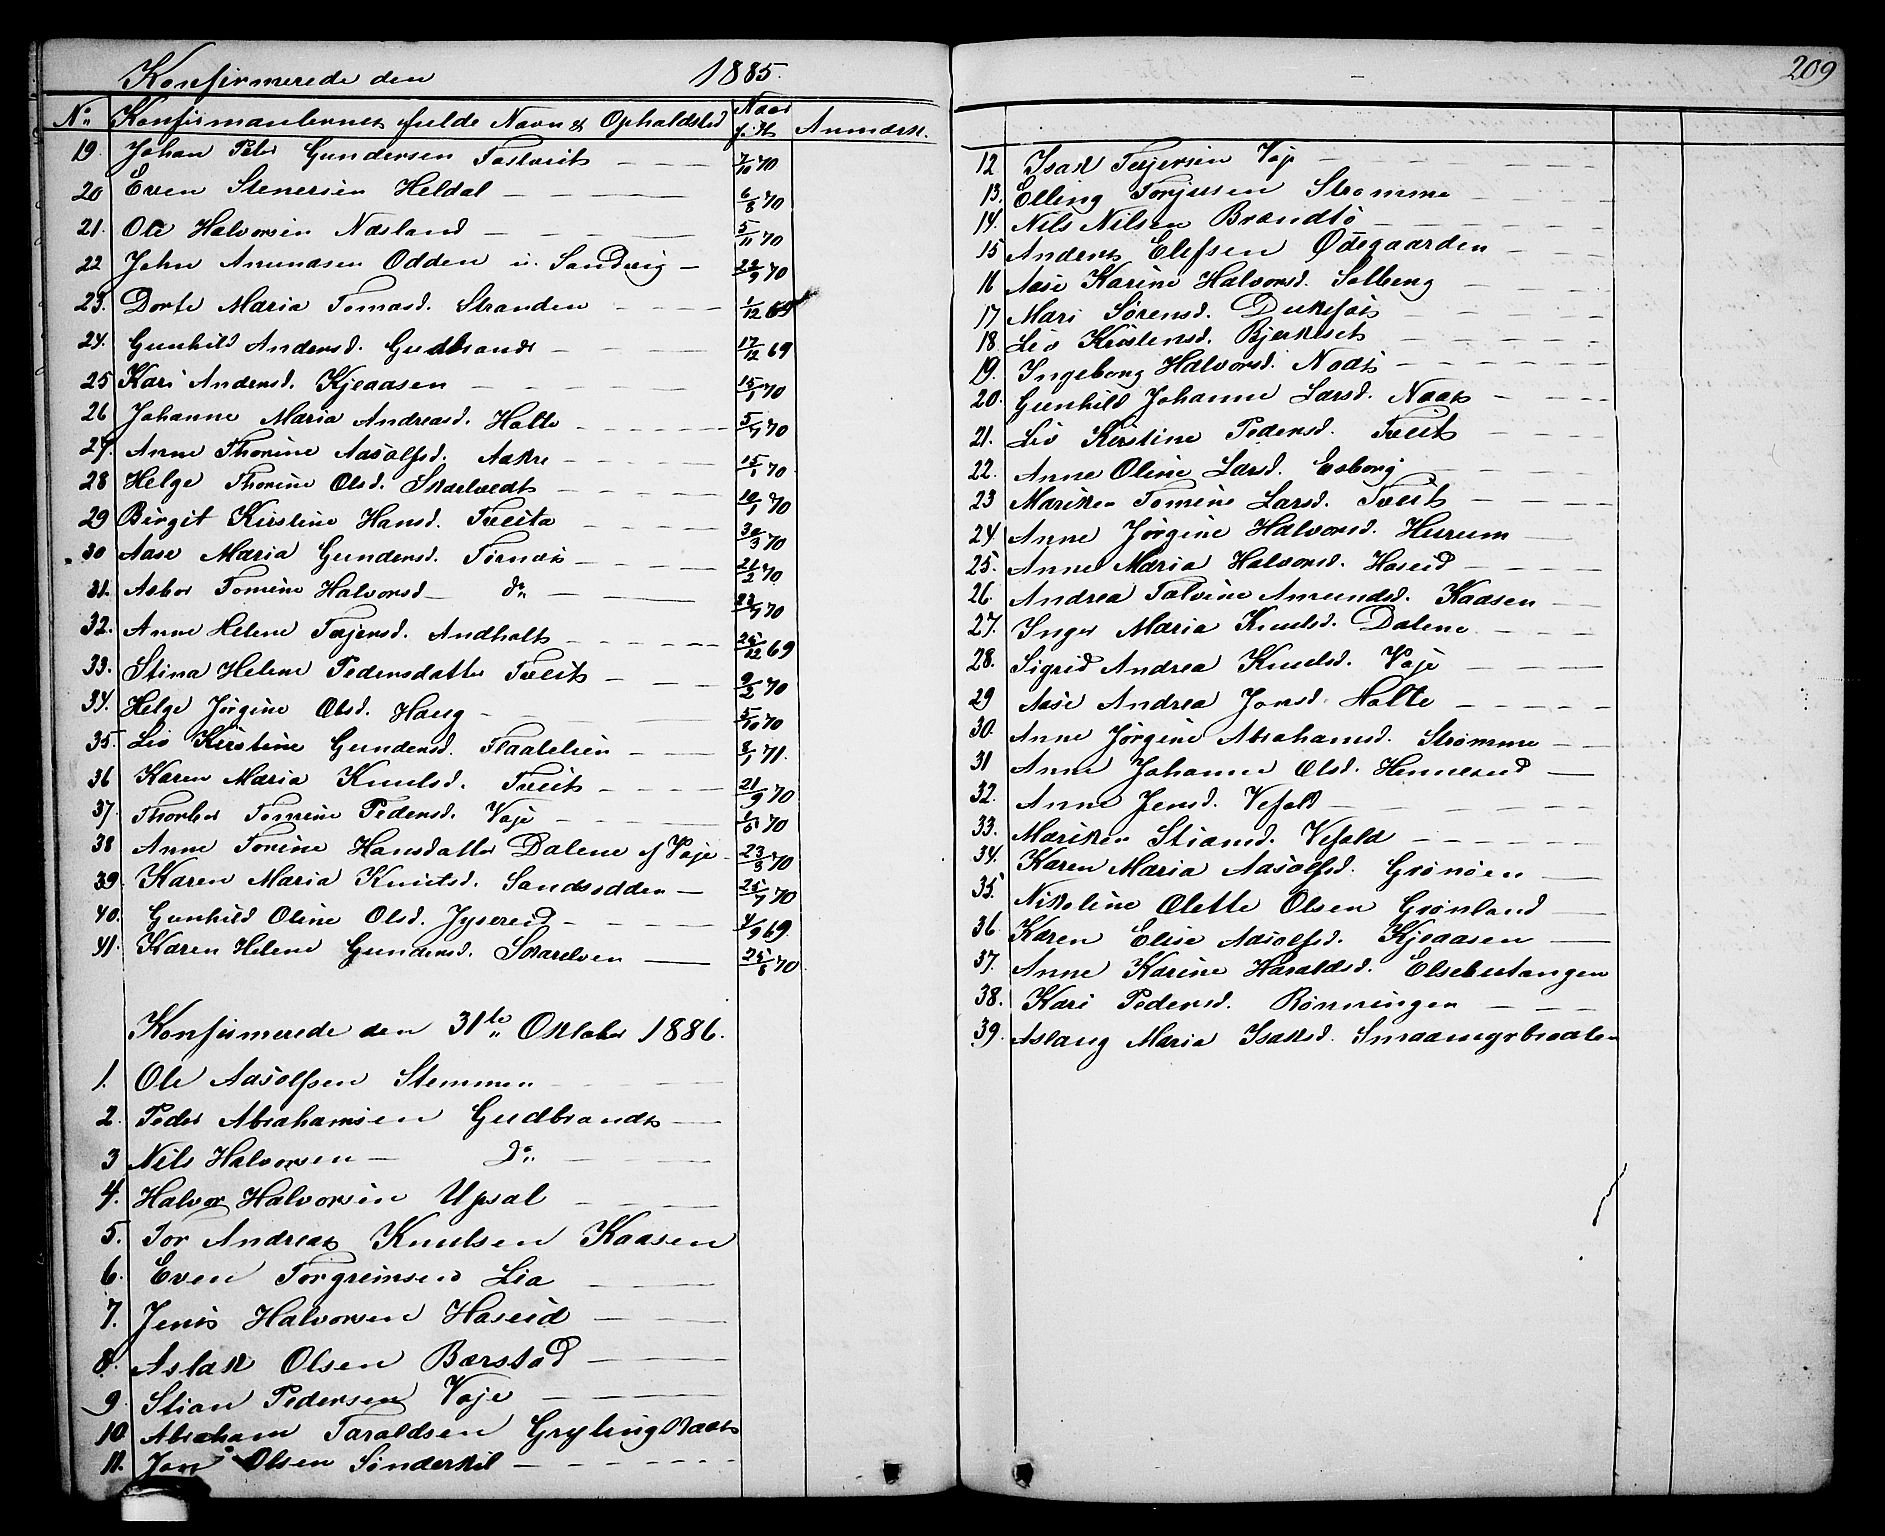 Konfirmerede den 1885.
No. Konfirmanternes fulde Navn & Opholdsted Naar født Anmærk.
19. Johan Peter Gundersen Tostveit 7/10 70
20 Even Stenersen Heldal 6/8 70
21. Ole Halvorsen Næsland 5/11 70
22 John Amundsen Odden u. Sandvig 22/9 70
23. Dorte Maria Tomasd. Stranden 1/12 69
24. Gunhild Andersd. Gudbrands 17/12 69
25 Kari Andersd. Kjeaasen 15/1 70
26 Johanne Maria Andreasd. Holte 5/7 70
27. Anne Thorine Aasolfsd. Aakre 15/1 70
28 Helge Thorine Olsd. Skarlvedt 10/1 70
29 Birgit Kirstine Hansd. Tveita 30/3 70
30 Aase Maria Gundersd. Tørnæs 21/2 70
31. Asbor Tomine Halvorsd do 23/7 70
32. Anne Helene Terjersd. Andholt 25/12 69
33. Stina Helene Pedersdatter Tveit 9/2 70
34. Helge Jørgine Olsd. Haug 5/10 70
35. Liv Kirstine Gundersd. Flaatelien 8/1 71.
36 Karen Maria Knutsd. Tveit 21/9 70
37. Thorbor Tomine Pedersd. Voje 1/6 70
38 Anne Torine Hansdatter Dalene af Voje 23/3 70
39. Karen Maria Knutsd. Sandsodden 25/7 70
40. Gunhild Oline Olsd. Jysereid 4/9 69.
41. Karen Helene Gundersd. Skarelven 25/8 70
Konfirmerede den 31te Oktober 1886.
1. Ole Aasolfsen Stemmen
2. Peder Abrahamsen Gudbrands
3 Nils Halvorsen do
4. Halvor Halvorsen Upsal
5. Tor Andreas Knutsen Kaasen
6. Even Torgrimsen Lia
7. Jens Halvorsen Haseid
8. Aslak Olsen Barstad
9 Stian Pedersen Voje
10 Abraham Taraldsen Grytingraak
11. Jon Olsen Sønderskil
209
12 Isak Terjersen Voje
13. Elling Torjusen Strømme
14. Nils Nilsen Brændtø
15 Anders Elefsen Ødegaarden
16 Aase Karine Halvorsd. Solberg
17 Mari Sørensd. Dukefos
18 Liv Kristensd. Bjerkset
19. Ingeborg Halvorsd. Nodt
20. Gunhild Johanne Larsd. Naas
21. Liv Kirstine Pedersd. Tveit
22. Anne Oline Larsd. Esborg
23 Mariken Tomine Larsd. Tveit
24 Anne Jørgine Halvorsd. Hurum
25. Anne Maria Halvorsd. Haseid
26. Andrea Talvine Amundsd. Kaasen
27. Inger Maria Knutsd. Dalene
28. Sigrid Andrea Knutsd. Voje
29 Aase Andrea Jonsd. Holte
30. Anne Jørgine Abrahamsd. Strømme
31 Anne Johanne Olsd. Henneseid
32. Anne Jensd. Vefald
33. Mariken Stiansd. Vefald
34. Karen Maria Aasolfsd. Grønøen
35. Nikoline Olette Olsen Grønland
36 Karen Elise Aasolfsd. Kjeaasen
37. Anne Karine Haraldsd. Elsebutangen
38. Kari Pedersd. Rønningen
39. Aslaug Maria Isaksd. Smaamyrbraaten